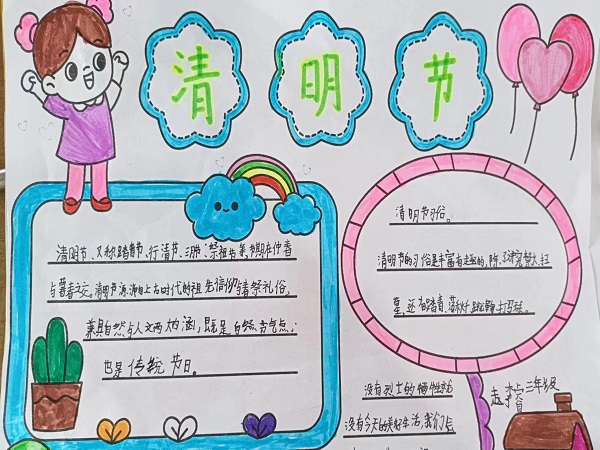 清明节
清明节、又称踏青节、行清节、三月节、祭祖节等，节期在仲春
与暮春之交。清明节源自上古时代的祖先信仰与春祭礼俗，
兼具自然与人文两大内涵，既是自然节气点，
也是传统节日。
清明节习俗。
清明节的习俗是丰富有趣的，除了讲究禁火、扫
墓，还有踏青、荡
没有烈士的牺牲就
没有今天的美好生活，我们
三年级